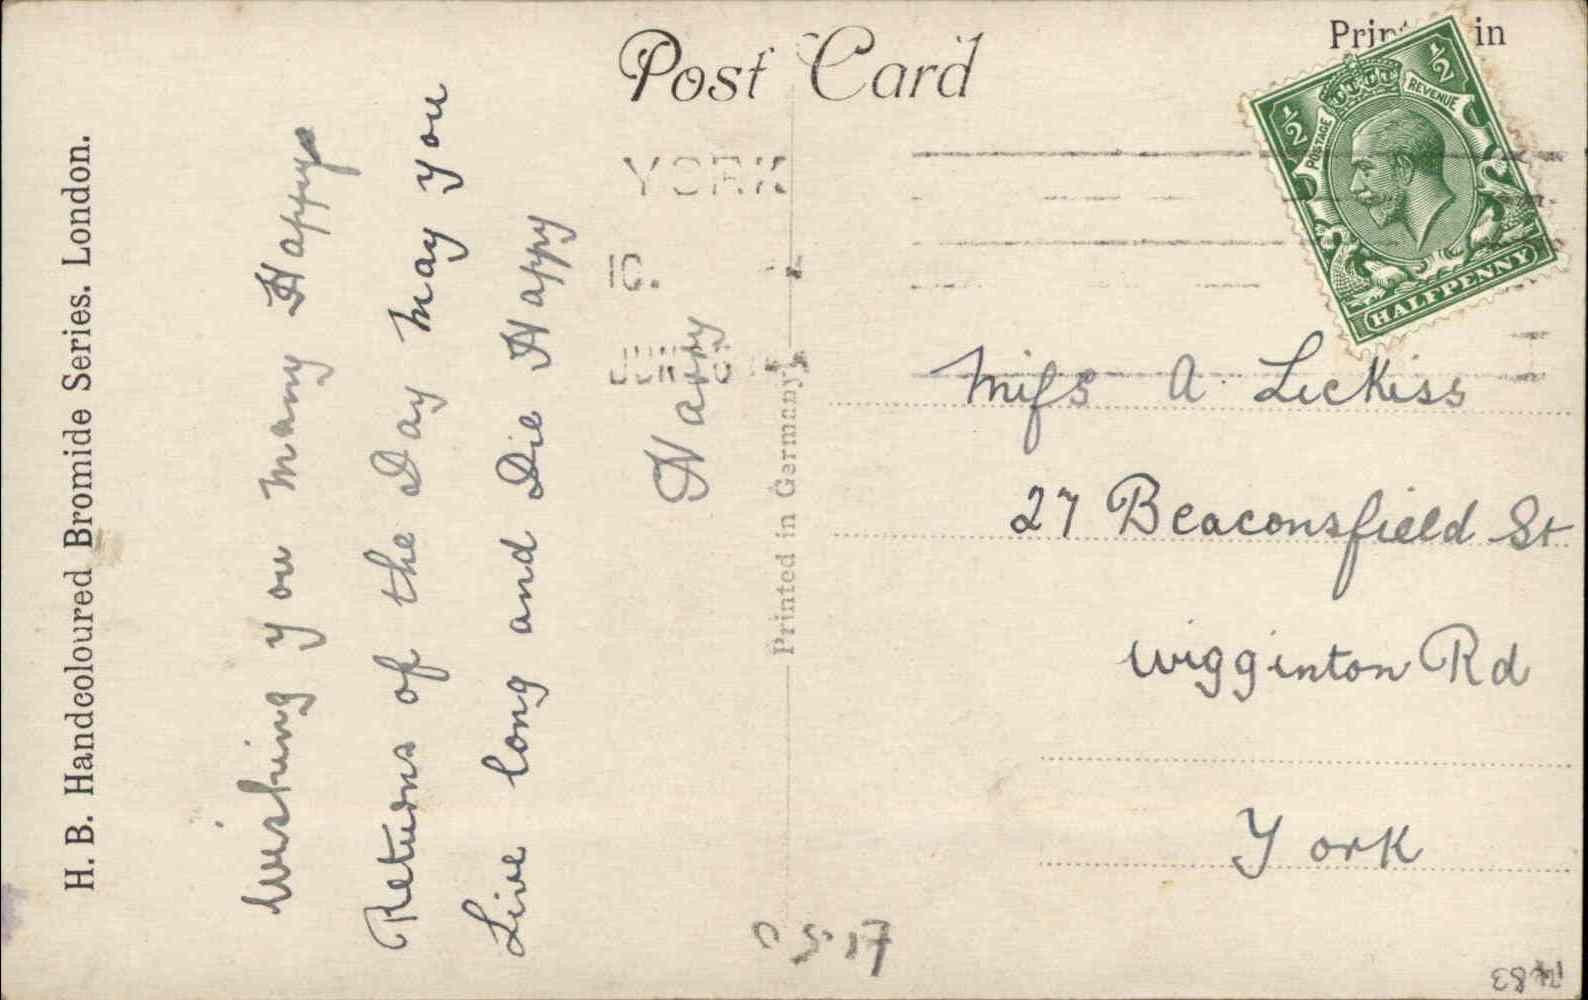 H. B. Handcoloured Bromide Series. London.
Post Card
in
½ ½
POSTAGE REVENUE
HALFPENNY
YORK
Wishing you many Happy
Returns of the Day may you
Live long and Die Happy
Harry
Printed in Germany
Miss A Lickiss
27 Beaconsfield St
Wigginton Rd
York